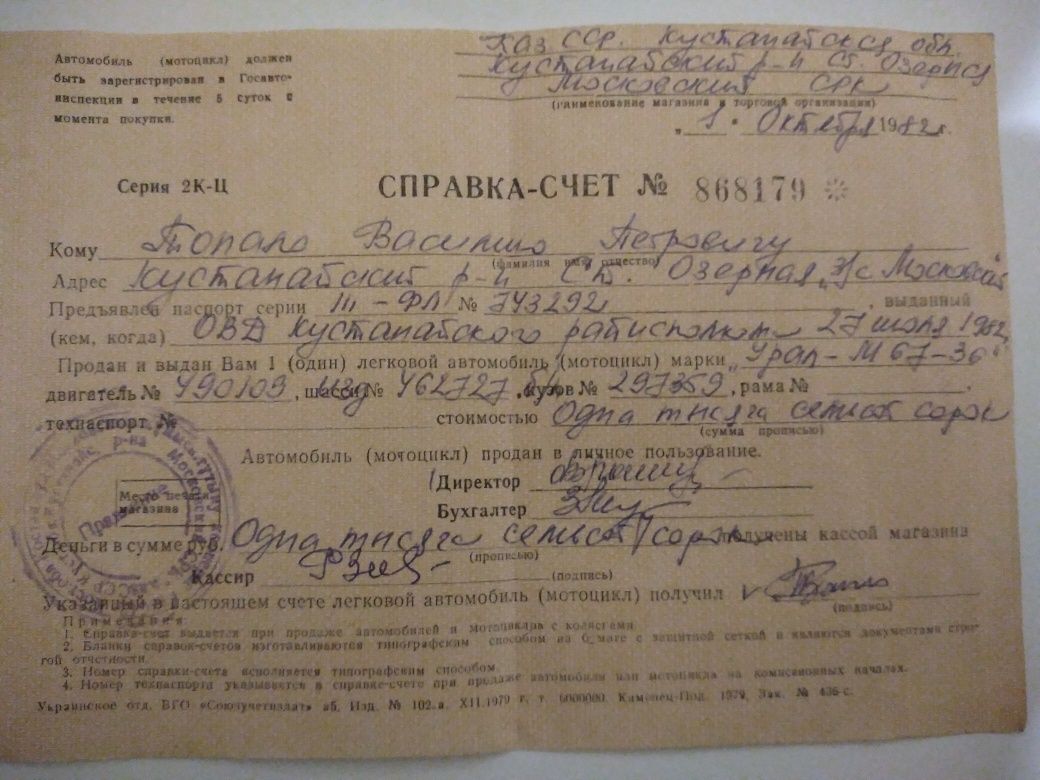 Автомобиль (мотоцикл) должен
быть зарегистрирован в Госавто-
инспекции в течение 5 суток с
момента покупки.
Каз. ССР. Кустанайская обл.
Кустанайский р-н ст. Озерная
Московский
(наименование магазина и торговой организации)
„1" Октября 1982 г.
Серия 2К-Ц СПРАВКА-СЧЕТ № 868179
Кому Топало Василию Петровичу
(фамилия имя отчество)
Адрес Кустанайский р-н ст. Озерная, з/с Московский
Предъявлен паспорт серии III-ФЛ № 743292, выданный
(кем, когда) ОВД Кустанайского райисполкома 27 июля 1982
Продан и выдан Вам 1 (один) легковой автомобиль (мотоцикл) марки „Урал-М 67-36"
двигатель № 490109, шасси № 462727, кузов № 297359, рама №
техпаспорт № стоимостью Одна тысяча семьсот сорок
(сумма прописью)
Автомобиль (мотоцикл) продан в личное пользование.
Директор
Место печати
магазина
Бухгалтер
Деньги в сумме руб. Одна тысяча семьсот сорок получены кассой магазина
(прописью)
Кассир (подпись)
Указанный в настоящем счете легковой автомобиль (мотоцикл) получил
(подпись)
Примечания:
1. Справка-счет выдается при продаже автомобилей и мотоциклов с колясками.
2. Бланки справок-счетов изготавливаются типографским способом на бумаге с защитной сеткой и являются документами стро-
гой отчетности.
3. Номер справки-счета исполняется типографским способом.
4. Номер техпаспорта указывается в справке-счете при продаже автомобиля или мотоцикла на комиссионных началах.
Украинское отд. ВГО «Союзучетиздат» з5. Изд. № 102.а. XII.1979 г. т. 6000000. Каменец-Под. 1979, Зак. № 436-с.